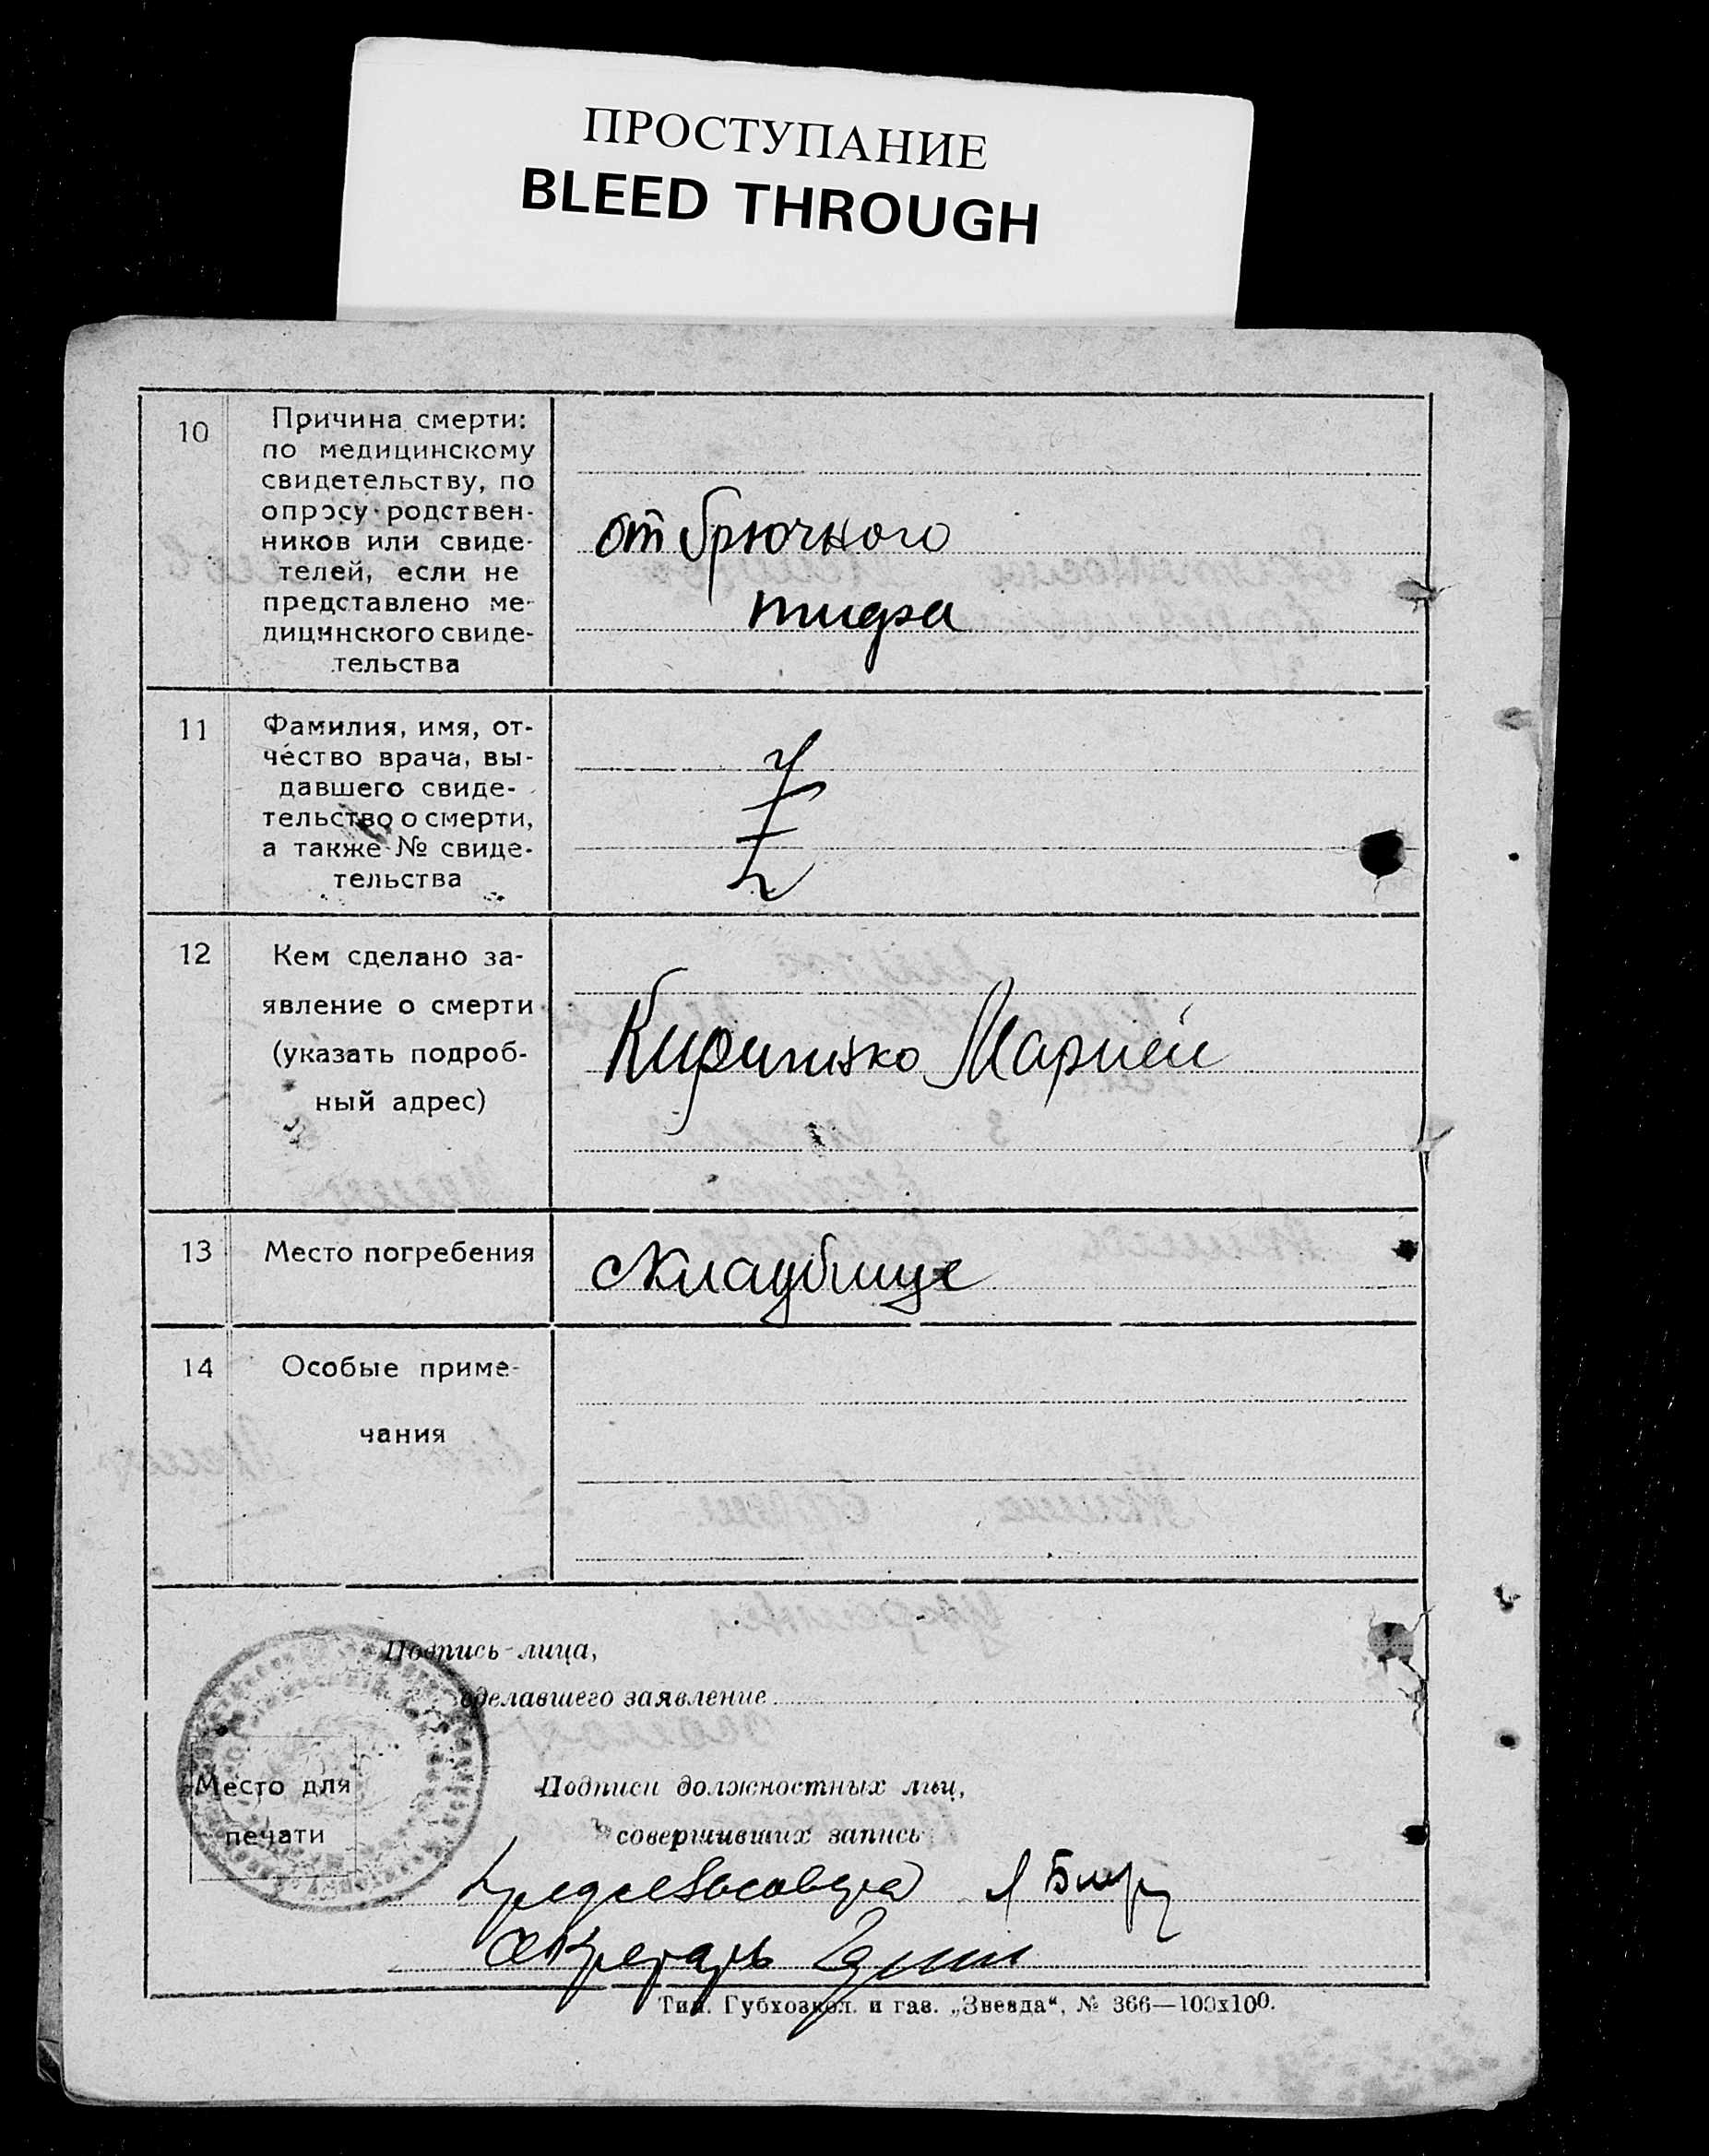 ПРОСТУПАНИЕ
BLEED THROUGH
10
Причина смерти:
по медицинскому
свидетельству, по
опросу родствен-
ников или свиде-
телей, если не
представлено ме-
дицинского свиде-
тельства
от брючного
тифа
11
Фамилия, имя, от-
чество врача, вы-
давшего свиде-
тельство о смерти,
а также № свиде-
тельства
12
Кем сделано за-
явление о смерти
(указать подроб-
ный адрес)
Марией
13
Место погребения
кладбище
14
Особые приме-
чания
Подпись лица,
сделавшего заявление
Место для
печати
Подписи должностных лиц,
совершивших запись
секретарь
Тип. Губхозкол. и газ. „Звезда“, № 366—100х100.